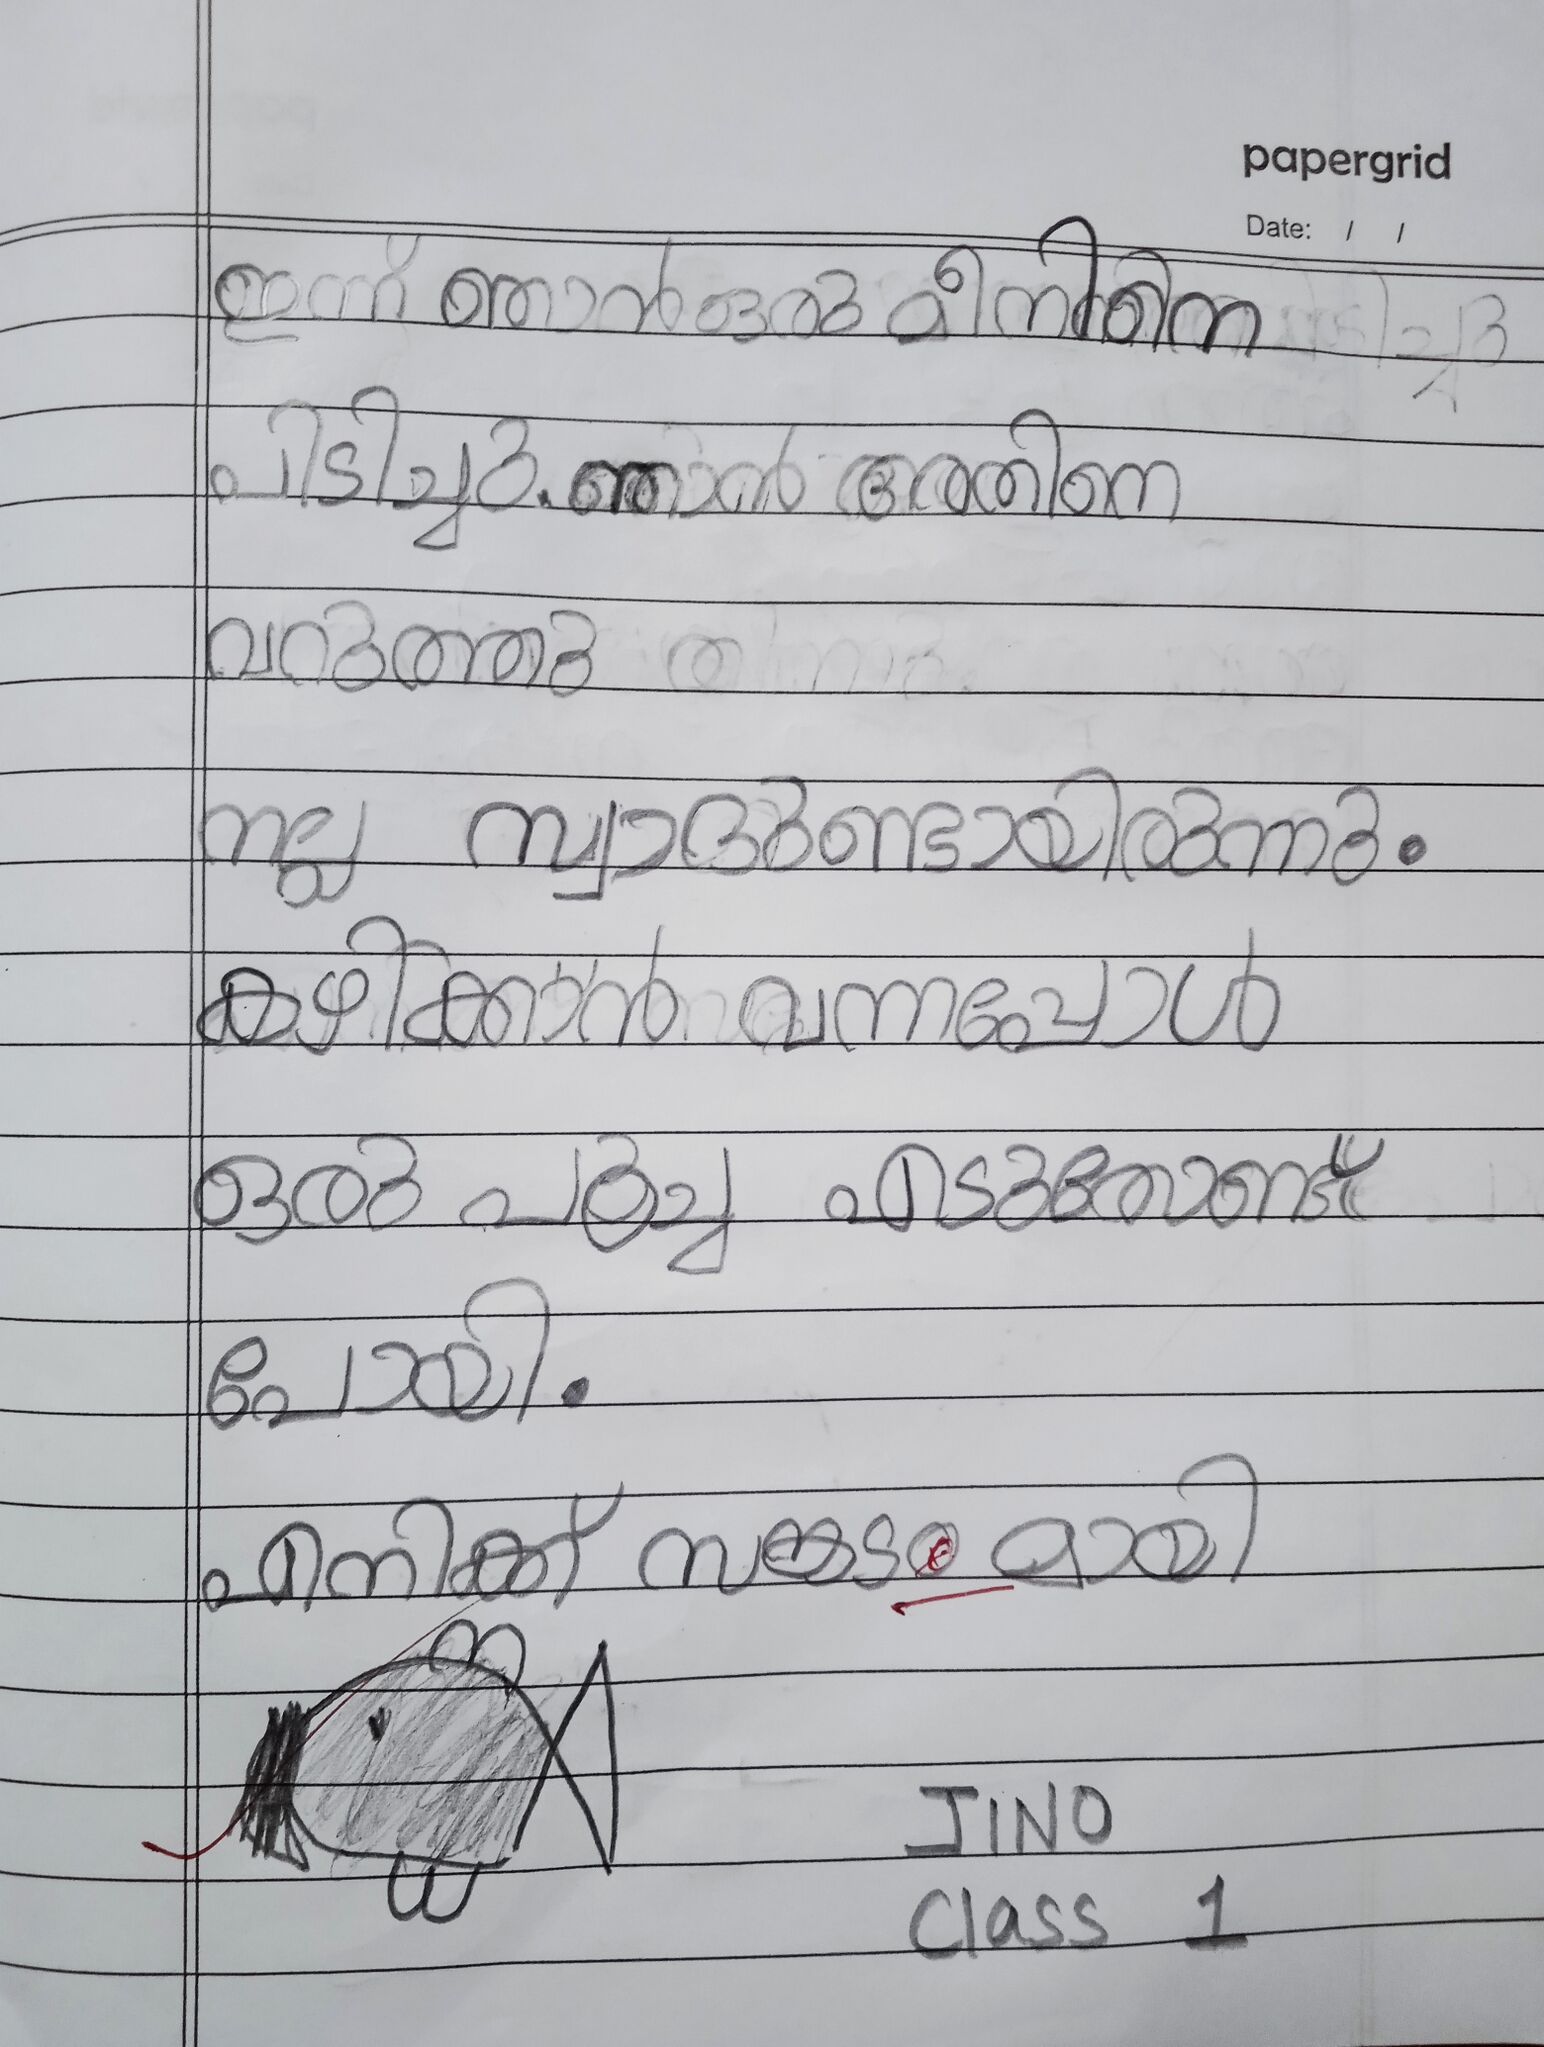 papergrid
Date: / /
ഇന്ന് ഞാൻ ഒരു മീനിനെ
പിടിച്ചു. ഞാൻ അതിനെ
വറുത്തു
നല്ല സ്വാദുണ്ടായിരുന്നു.
കഴിക്കാൻ വന്നപ്പോൾ
ഒരു പൂച്ച എടുത്തോണ്ട്
പോയി.
എനിക്ക് സങ്കടമായി
JINO
Class 1